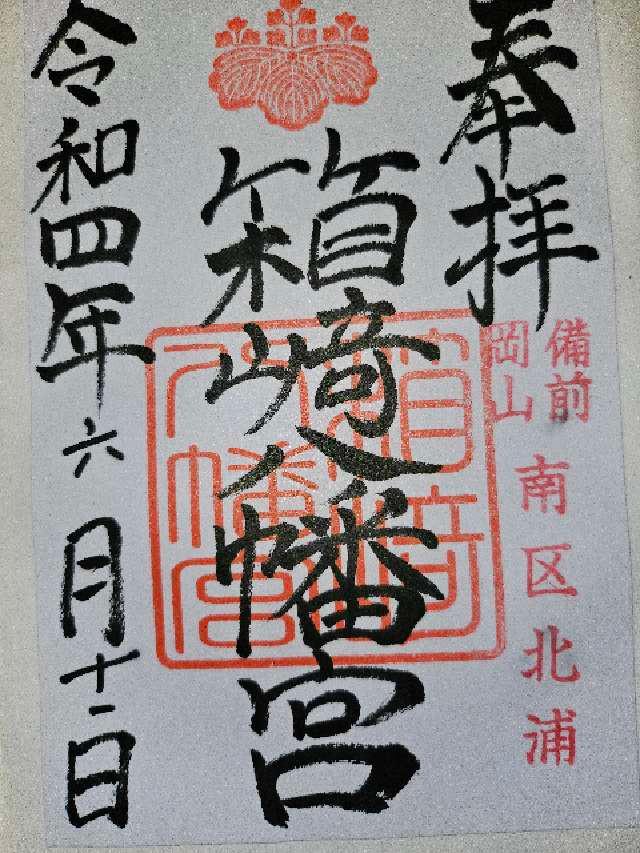 奉拝
備前
岡山
南区北浦
箱崎八幡宮
箱崎八幡宮
令和四年六月十一日